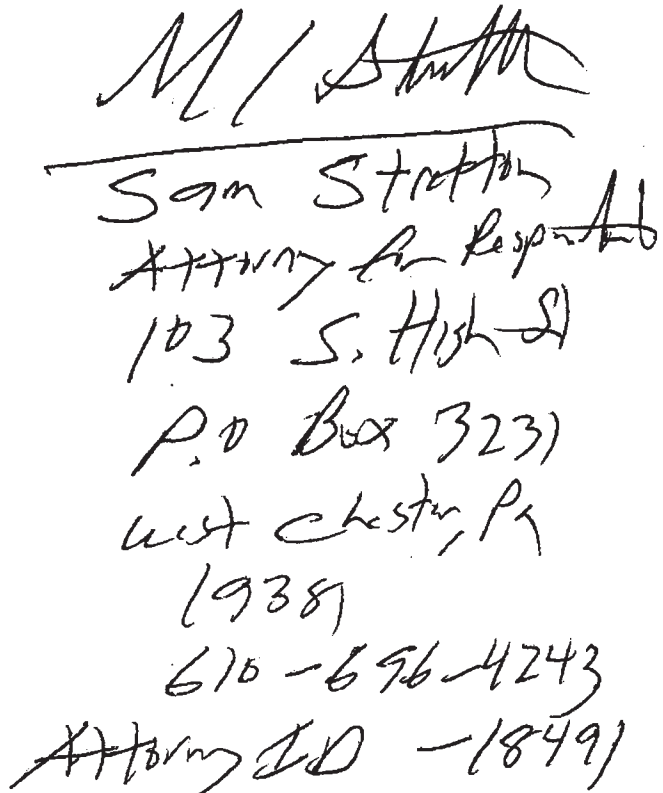 Sam Stretton
Attorney for Respondent
103 S. High St
P.O Box 3231
West Chester, Pa
19381
610-696-4243
Attorney ID -18491